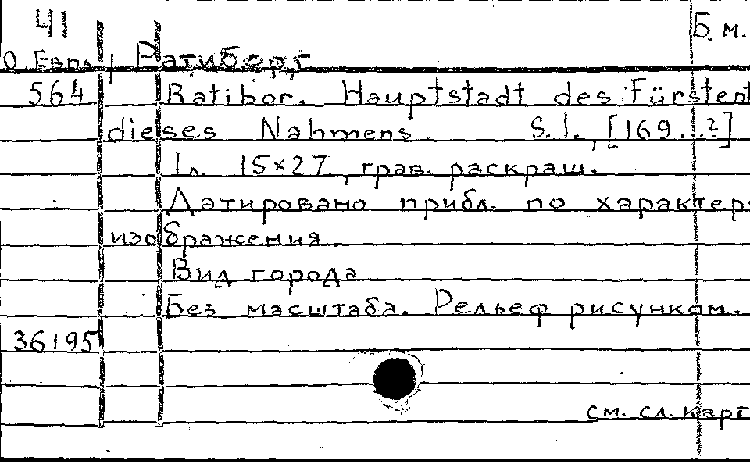 41 Б. м.
О Евп. Ратиберг
564 Ratibor. Hauptstadt des Fürstent
dieses Nahmens. S.l., [169..?]
1 л. 15×27, грав. раскраш.
Датировано прибл. по характер
изображения.
Вид города
Без масштаба. Рельеф рисунком.
36195
см. сл. карт